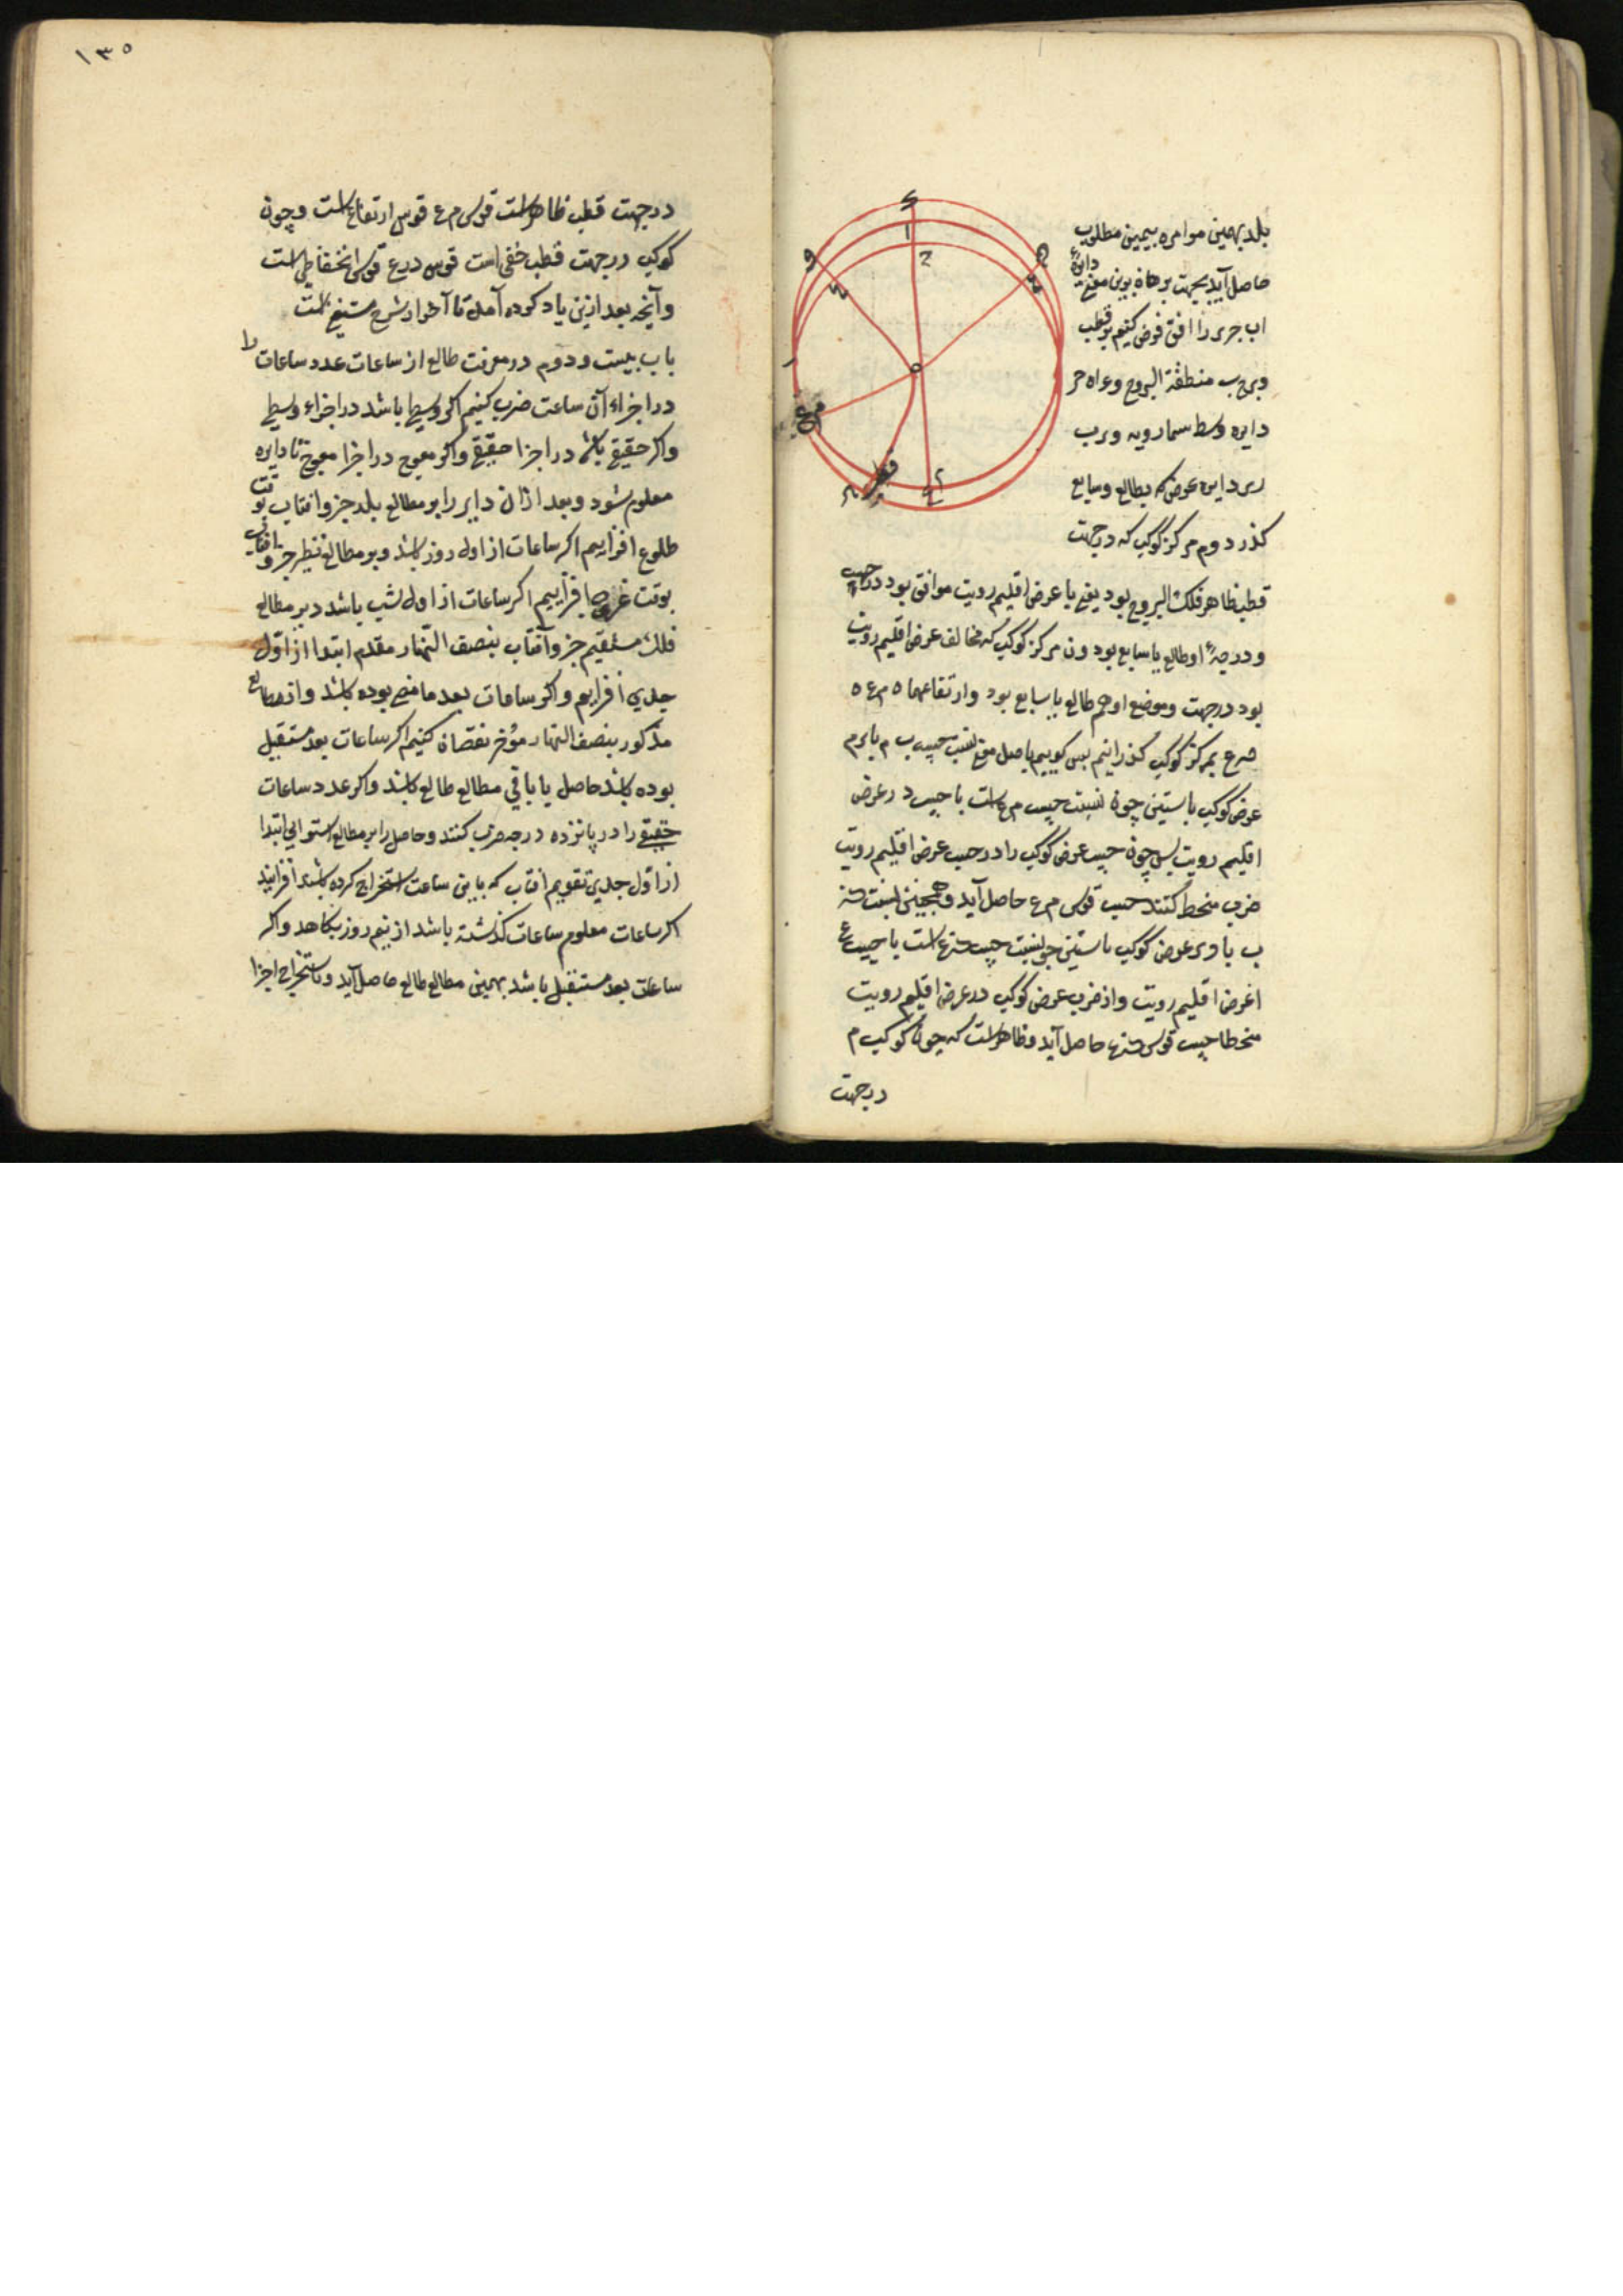 بلد بهمین موامره بیمین مطلوب
حاصل آید بجهت برهان برین معنی دایرهٔ
اب جری را افق فرض کنیم بر قطب
وبرج ب منطقة البروج وعراه حر
دایره وسط سما رویه وبرب
ربر دایره عرض که بطالع وسابع
کذرد وم مرکز کوکب که در جهت
قطب ظاهر فلک البروج بود یعنی با عرض اقلیم رویت موافق بود در جهت
ودرجهٔ او طالع یا سابع بود ون مرکز کوکب که مخالف عرض اقلیم رویت
بود در جهت وموضع او هم طالع یا سابع بود وارتفاعها ه م ع ه
بمرکز کوکب کذرانیم پس کوییم نسبت جیب ب م
عرض کوکب با ستینی چون نسبت جیب م ع است با جیب د ر عرض
اقلیم رویت پس چون جیب عرض کوکب را در جیب عرض اقلیم رویت
ضرب منحط کنند جیب قوس م ع حاصل آید وهمچنین نسبت
ب یا وی عرض کوکب با ستینی چو نسبت جیب است با جیب ع
ا عرض اقلیم رویت واز ضرب عرض کوکب در عرض اقلیم رویت
منحطا جیب قوس حاصل آید وظاهر است که چون کوکب م
در جهت
١٣٥
در جهت قطب ظاهر است قوس م ع قوس ارتفاع است وچون
کوکب در جهت قطب خفی است قوس درع قوس انخفاض است
وآنچه بعد ازین یاد کرده آمد تا آخر از شرح مستغنی است
باب بیست ودوم در معرفت طالع از ساعات عدد ساعات را
در اجزاء آن ساعت ضرب کنیم اکر وسطی باشد در اجزاء وسطی
واکر حقیقی باشد در اجزا حقیقی واکر معوج در اجزا معوج تا دایره
معلوم شود وبعد ازان دایر را بر مطالع بلد جزو افتاب بوقت
طلوع افزاییم اکر ساعات از اول روز باشد وبر مطالع نظیر جزو افتاب
بوقت غروب افزاییم اکر ساعات از اول شب باشد وبر مطالع
فلک مستقیم جزو آفتاب بنصف النهار مقدم ابتدا از اول
جدی افزاییم واکر ساعات بعد ماضی بوده باشد واز مطالع
مذکور بنصف النهار مؤخر نقصان کنیم اکر ساعات بعد مستقبل
بوده باشد حاصل یا باقی مطالع طالع باشد واکر عدد ساعات
حقیقی را در پانزده درجه ضرب کنند وحاصل را بر مطالع استوائی ابتدا
از اول جدی تقویم افتاب که باین ساعت استخراج کرده باشند افزایند
اکر ساعات معلوم ساعات کذشته باشد از نیم روز بکاهد واکر
ساعات بعد مستقبل باشد بهمین مطالع طالع حاصل آید وباستخراج اجزا